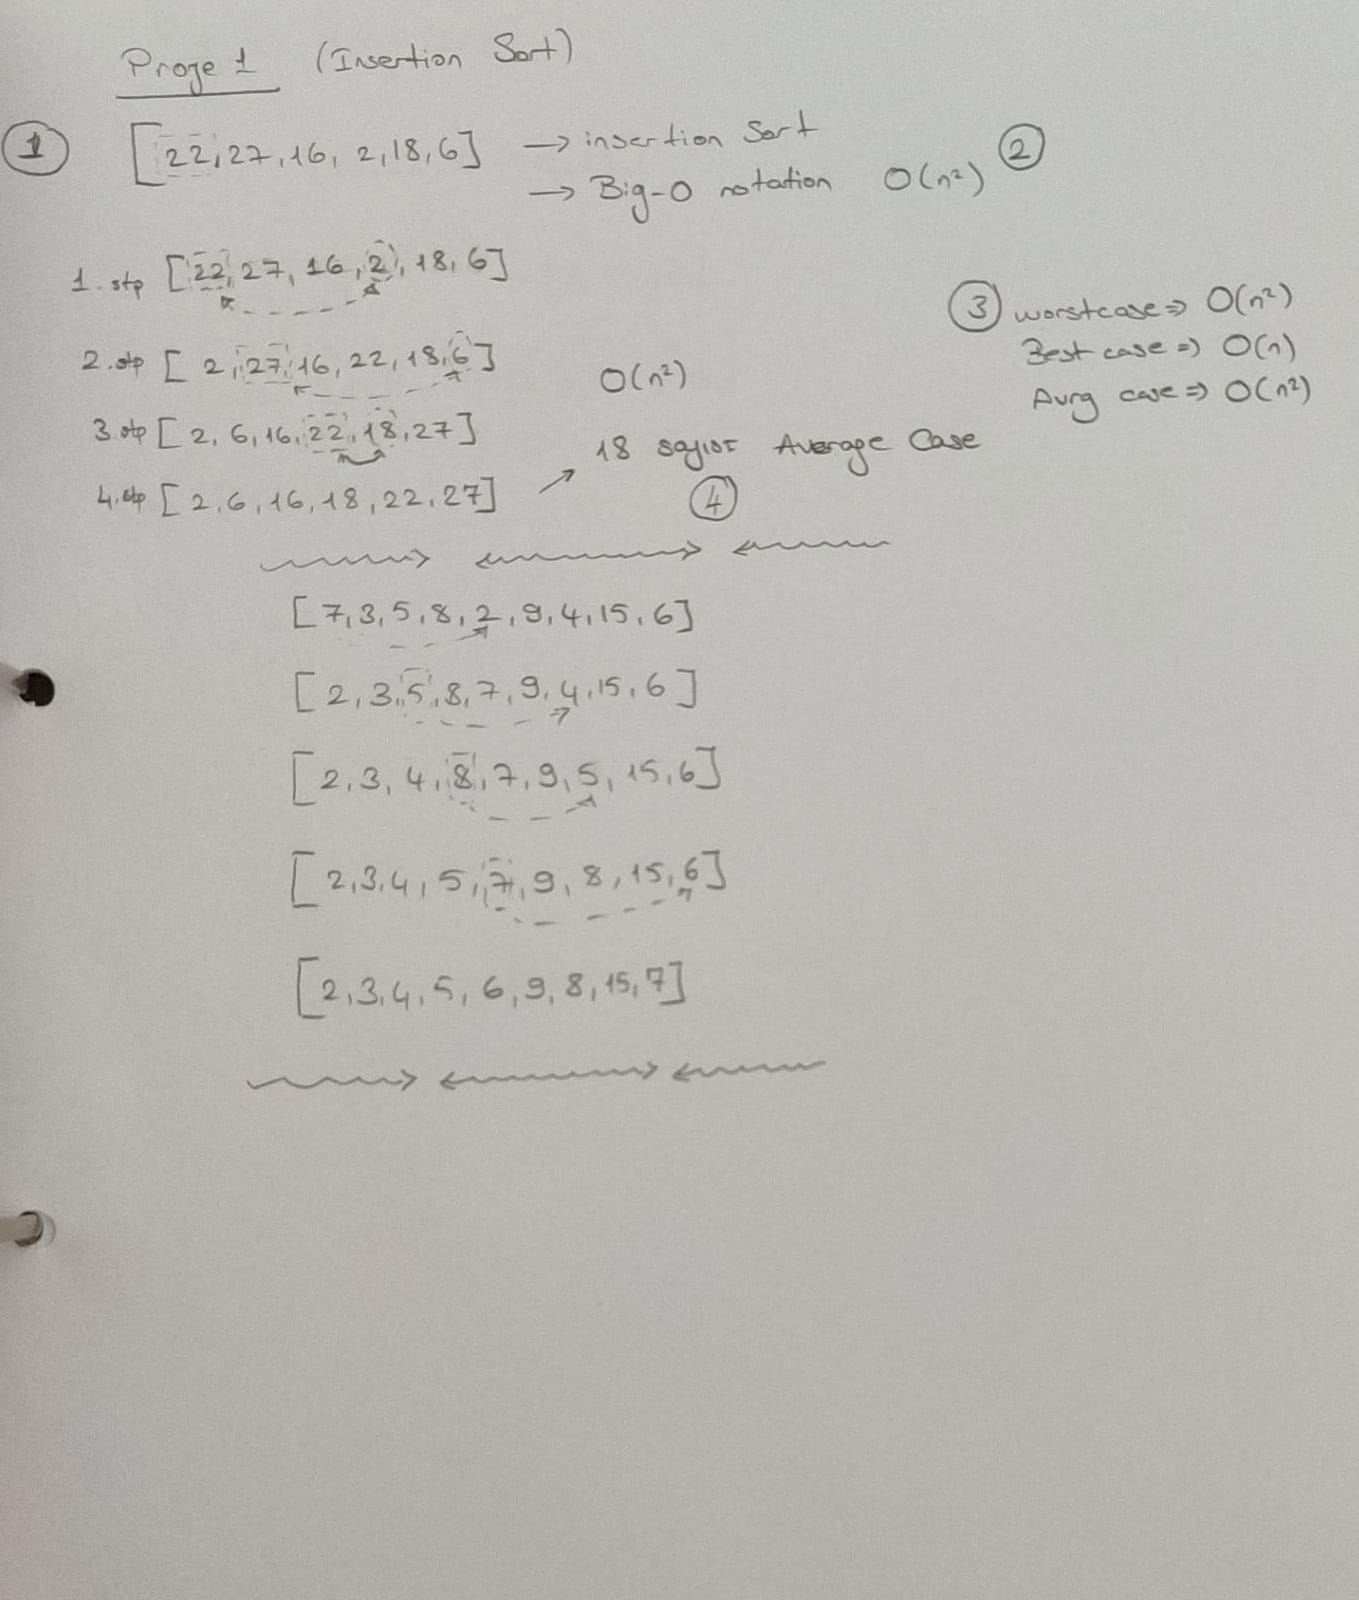 Proje 1 (Insertion Sort)
1 [22,27,16, 2,18,6] → insertion Sort
→ Big-O notation O(n²) 2
1. stp [22,27, 16, 2, 18, 6]
2. stp [ 2, 27, 16, 22, 18, 6]
3. stp [ 2, 6, 16, 22, 18, 27]
4. stp [ 2, 6, 16, 18, 22, 27]
O(n²)
18 sayısı Average Case
4
3 worstcase => O(n²)
Best case => O(n)
Avrg case => O(n²)
[7,3,5,8,2,9,4,15,6]
[2,3,5,8,7,9,4,15,6]
[2,3,4,8,7,9,5,15,6]
[2,3,4,5,7,9,8,15,6]
[2,3,4,5,6,9,8,15,7]